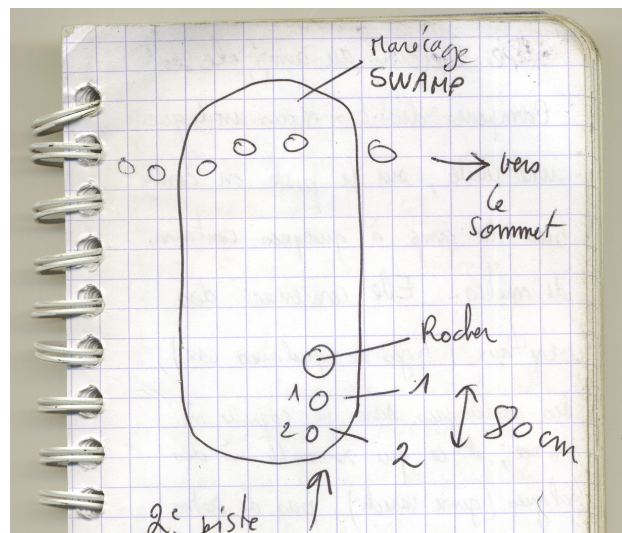 Marécage
SWAMP
vers
le
Sommet
Rocher
1
1
2
2
80 cm
2e piste